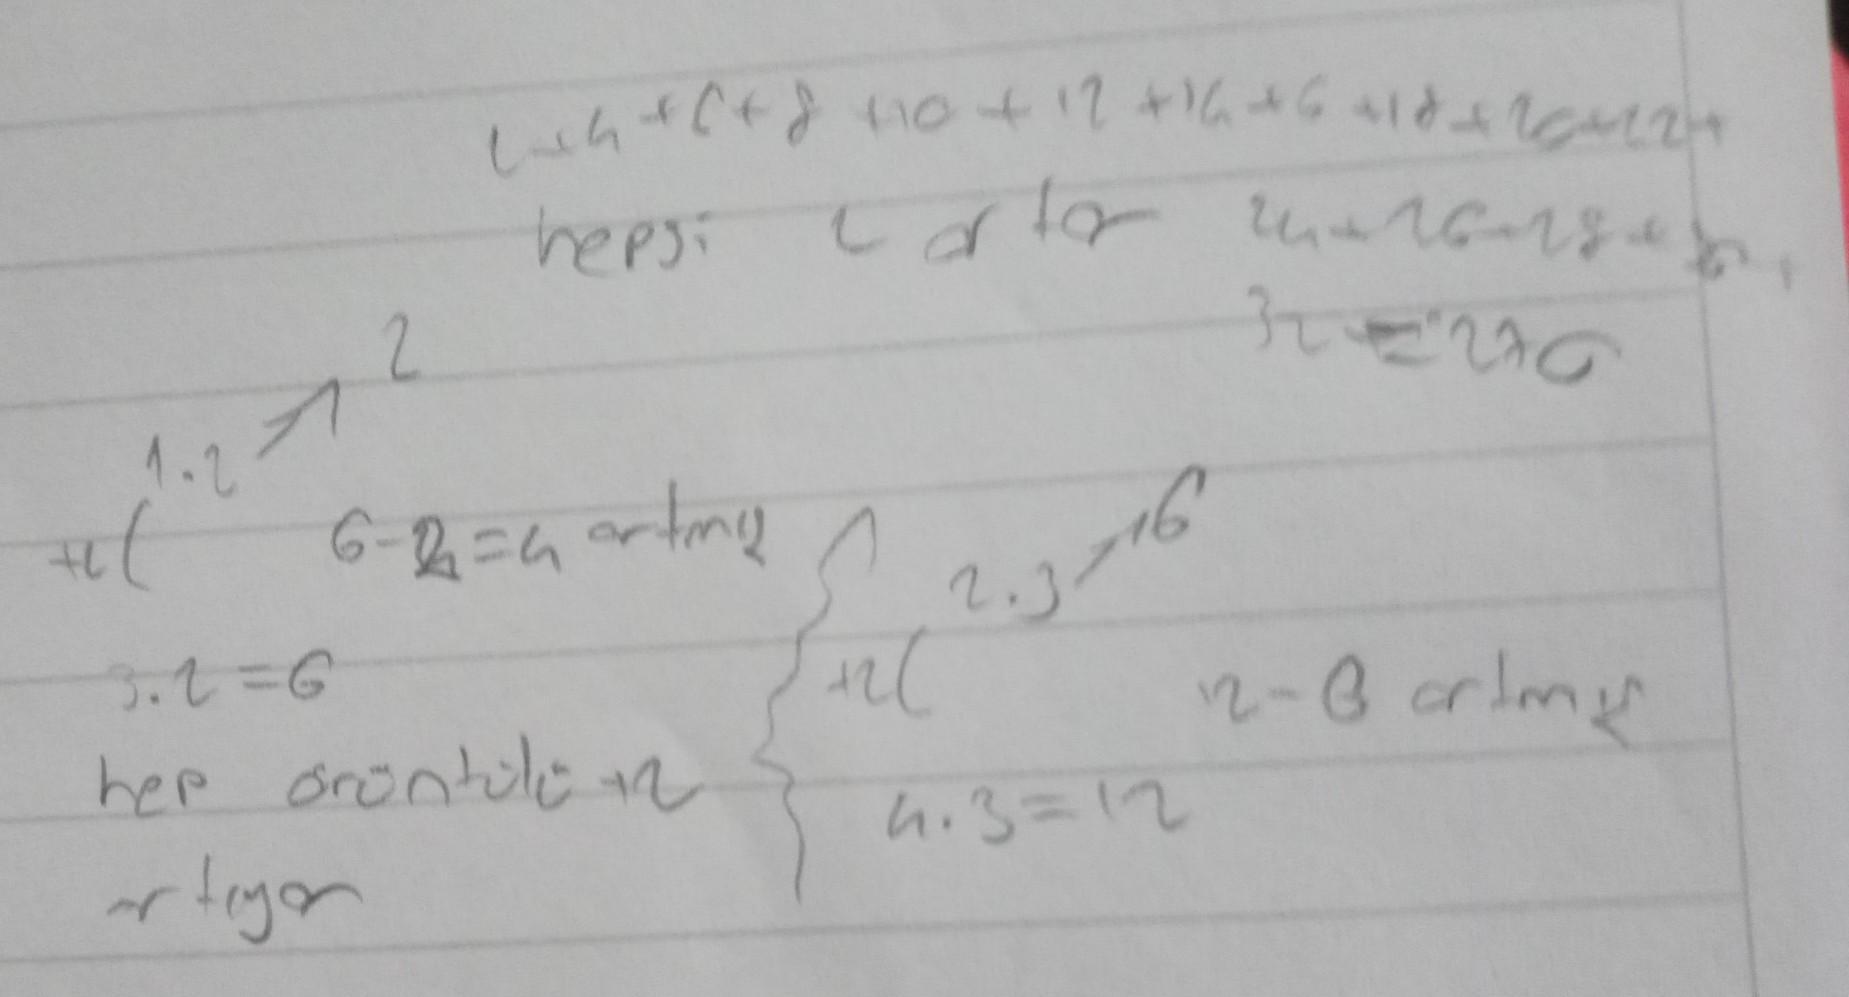 2+4+6+8+10+12+14+6+18+20+22+
hepsi 2 artar 24+26+28+30+
32=270
2
1.2
+2( 6-2=4 artmış
6
2.3
3.2=6
+2( 12-6 artmış
hep örüntülü +2
4.3=12
artıyor